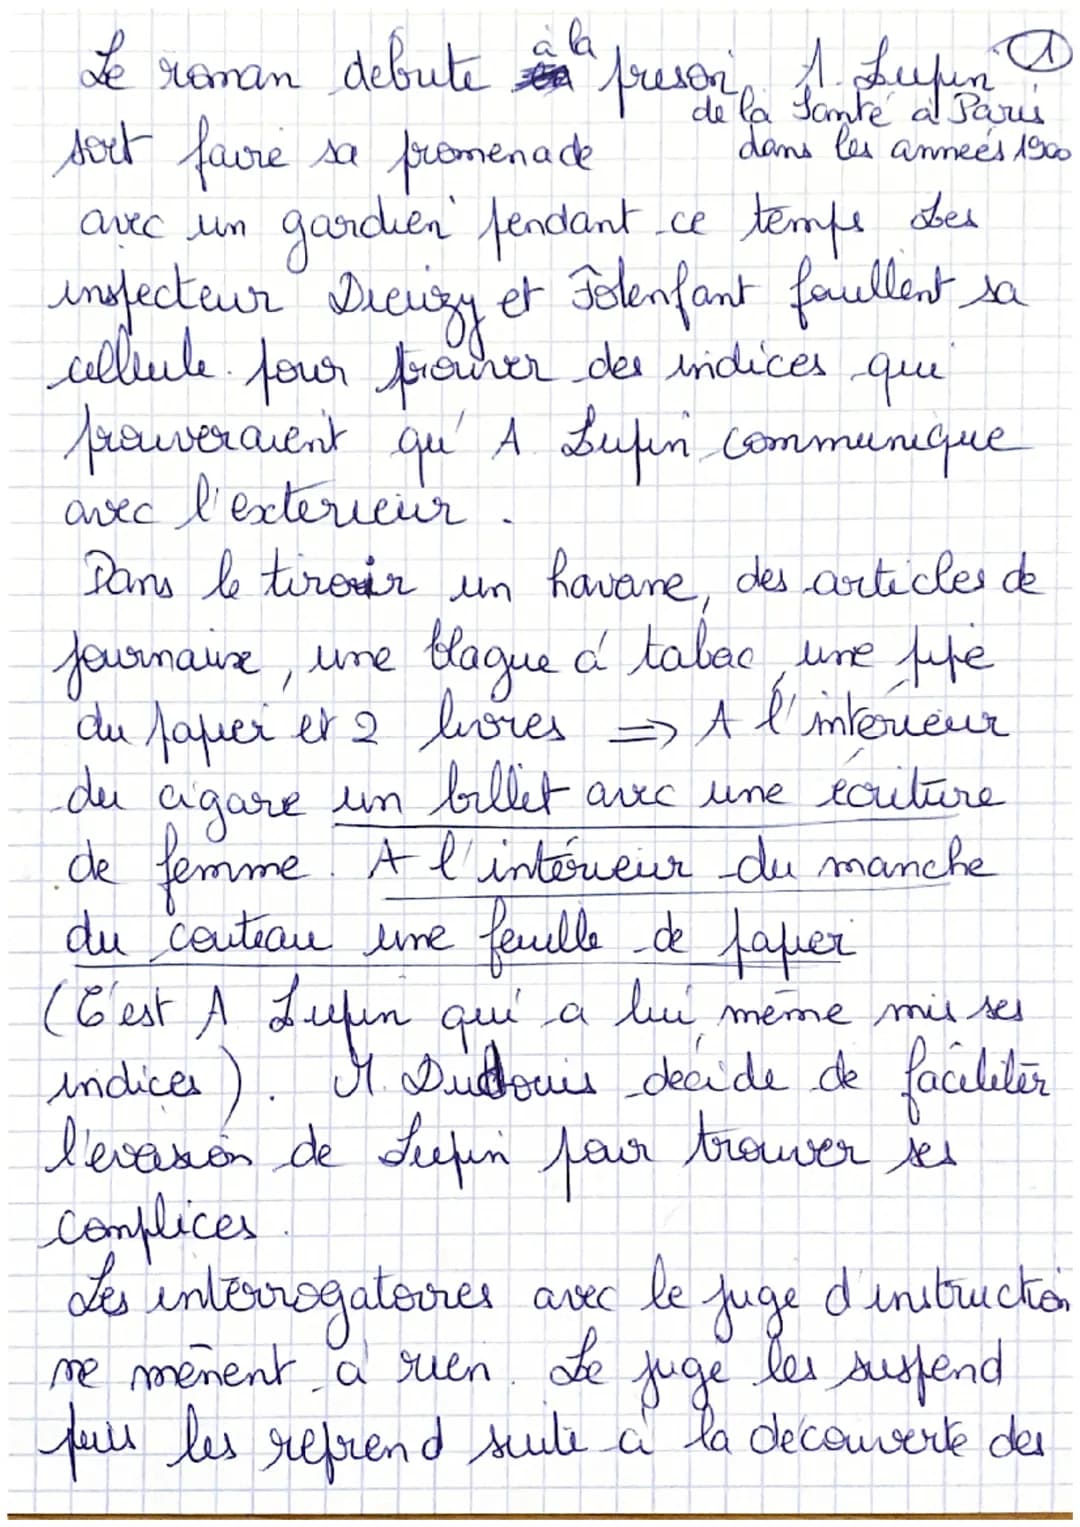 ①
Le roman debute à la preson, A. Lupin
de la Santé à Paris
dans les années 1900
sort faire sa promenade
avec un gardien pendant ce temps Les
inspecteur Dieuzy et Folenfant fouillent sa
cellule. pour trouver des indices qui
prouveraient qu' A Lupin communique
avec l'exterieur.
Dans le tiroir un havane, des articles de
journaux, une blague à tabac, une pipe
du papier et 2 livres => A l'intérieur
du cigare un billet avec une écriture
de femme. A l'intérieur du manche
du couteau une feuille de papier
(C'est A Lupin qui a lui même mis ses
indices). M. Dudouis décide de faciliter
l'evasion de Lupin pour trouver ses
complices.
Les interrogatoires avec le juge d'instruction
ne mènent à rien. Le juge les suspend
puis les reprend suite à la découverte des